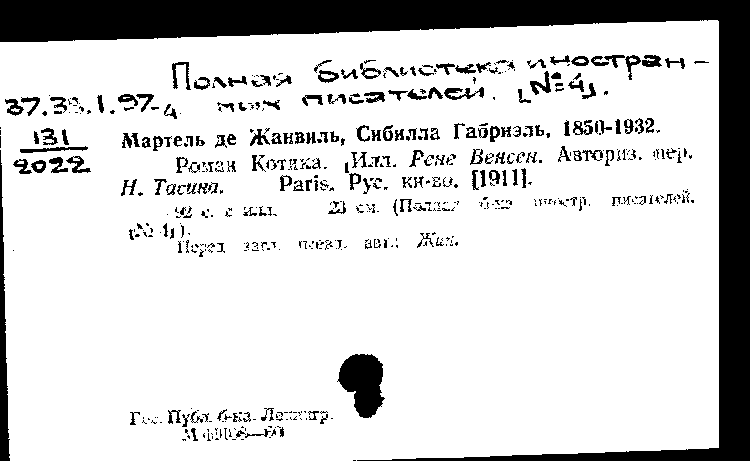 Полная библиотека иностран-
37.33.1.97-4 ных писателей. [№4].
131
2022
Мартель де Жанвиль, Сибилла Габриэль, 1850-1932.
Роман Котика. [Илл. Рене Венсен. Авториз. пер.
Н. Тасина. Paris. Рус. кн-во. [1911].
92 с. с илл. 23 см. (Полная б-ка иностр. писателей.
[№ 4]).
Перед загл. псевд. авт.: Жип.
Гос. Публ. б-ка. Ленингр.